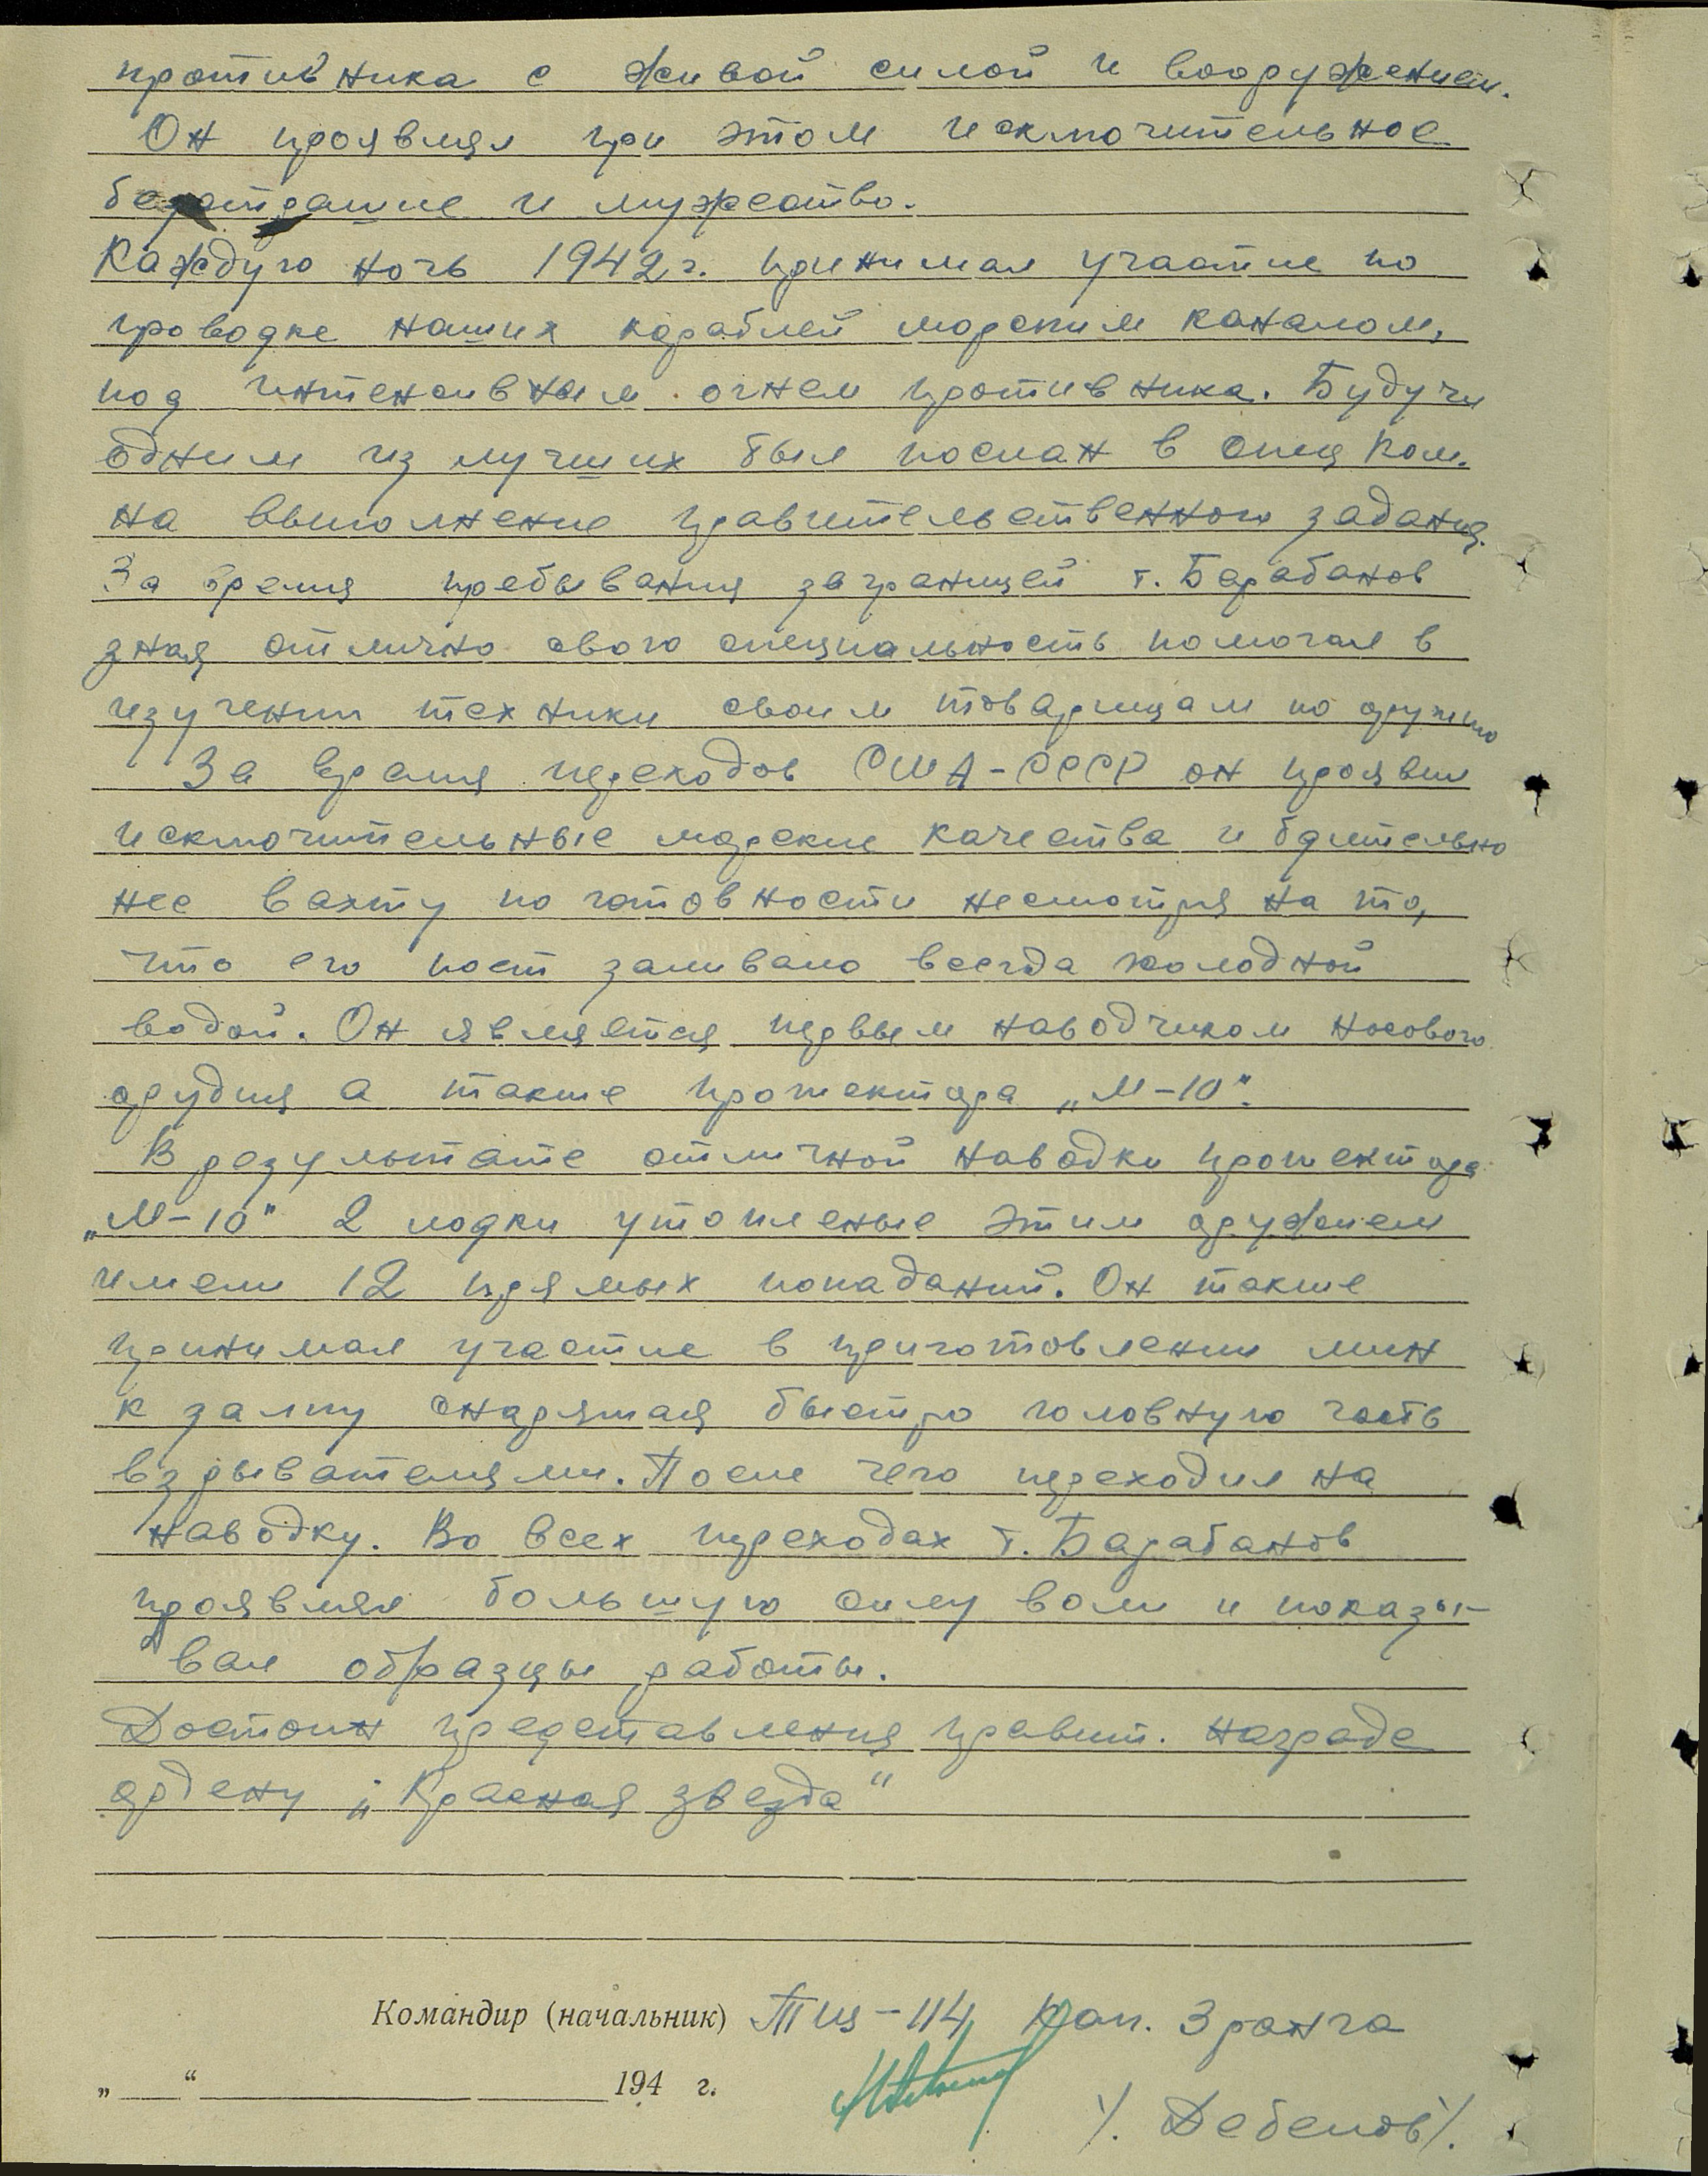 противника с живой силой и вооружением.
Он проявлял при этом исключительное
бесстрашие и мужество.
Каждую ночь 1942 г. принимал участие по
проводке наших кораблей морским каналом,
под интенсивным огнем противника. Будучи
одним из лучших был послан в спец ком.
на выполнение правительственного задания.
За время пребывания заграницей т. Барабанов
зная отлично свою специальность помогал в
изучении техники своим товарищам по оружию
За время переходов США-СССР он проявил
исключительные морские качества и бдительно
нес вахту по готовности несмотря на то,
что его пост заливало всегда холодной
водой. Он является первым наводчиком носового
орудия а также прожектора „М-10".
В результате отличной наводки прожектора
„М-10" 2 лодки утопленые этим оружием
имели 12 прямых попаданий. Он также
принимал участие в приготовлении мин
к залпу снаряжая быстро головную часть
взрывателями. После чего переходил на
наводку. Во всех переходах т. Барабанов
проявлял большую силу воли и показы-
вал образцы работы.
Достоин представления правит. награде
ордену „Красная звезда"
Командир (начальник) ТЩ-114 Кап. 3 ранга
„ “ 194 г.
/. Дебелов/.